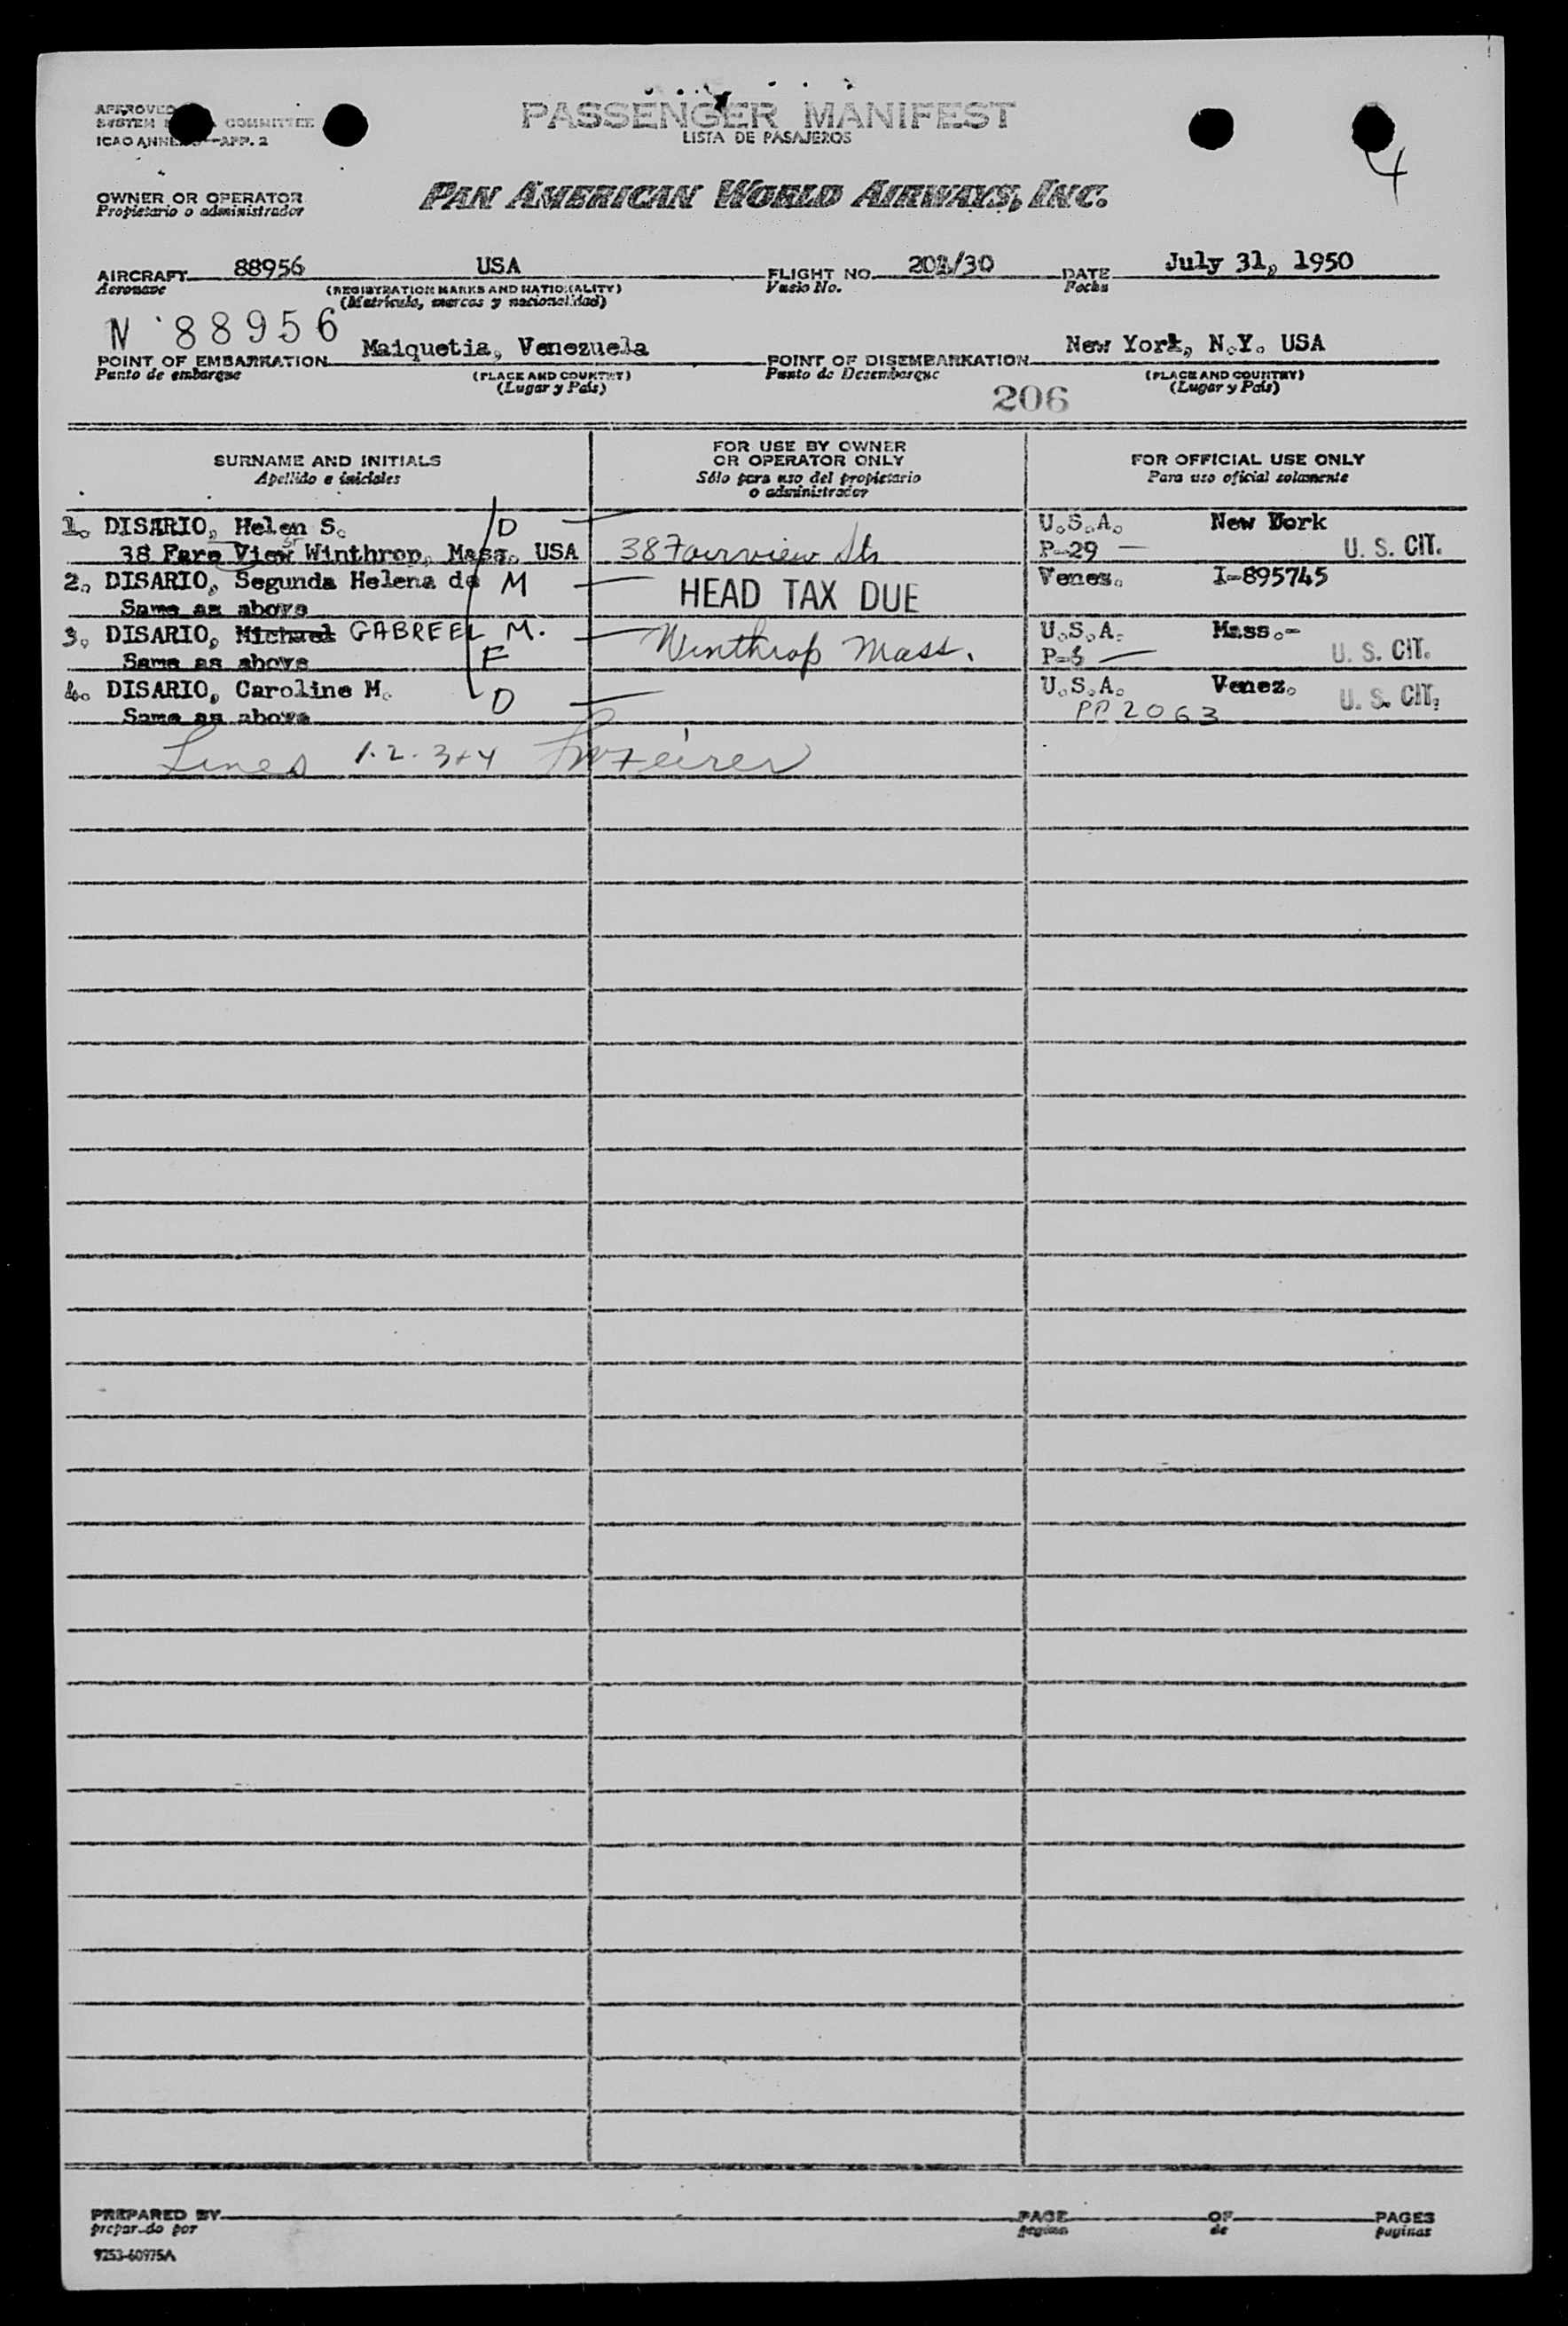 APPROVED
SYSTEM COMMITTEE
ICAO ANNEX APP. 2
PASSENGER MANIFEST
LISTA DE PASAJEROS
4
OWNER OR OPERATOR
Propietario o administrador
PAN AMERICAN WORLD AIRWAYS, INC.
AIRCRAFT 88956 USA FLIGHT NO. DATE July 31, 1950
Aeronave (REGISTRATION MARKS AND NATIONALITY) Vuelo No. Fecha
(Matrícula, marcas y nacionalidad)
N 88956
POINT OF EMBARKATION Maiquetia, Venezuela POINT OF DISEMBARKATION New York, N.Y. USA
Punto de embarque (PLACE AND COUNTRY) Punto de Desembarque (PLACE AND COUNTRY)
(Lugar y País) (Lugar y País)
206
SURNAME AND INITIALS FOR USE BY OWNER OR OPERATOR ONLY FOR OFFICIAL USE ONLY
Apellido e iniciales Sólo para uso del propietario o administrador Para uso oficial solamente
1. DISARIO, Helen S. D U.S.A. New York
38 Fare View St Winthrop, Mass. USA 38 Fairview St P-29 U. S. CIT.
2. DISARIO, Segunda Helena de M HEAD TAX DUE Venez. I-895745
Same as above
3. DISARIO, Michael GABREEL M. Winthrop Mass. U.S.A. Mass.-
Same as above F U. S. CIT.
4. DISARIO, Caroline M. D U.S.A. Venez. U. S. CIT.
Same as above PP 2063
Lines 1.2.3+4
PREPARED BY PAGE OF PAGES
preparado por pagina de paginas
9253-60975A